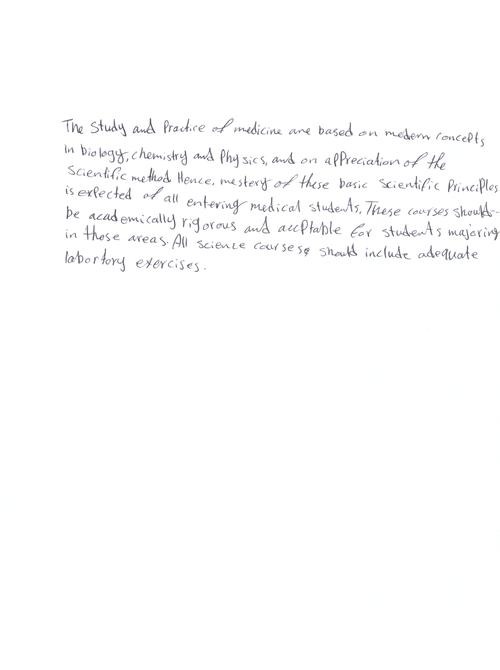 The Study and Practice of medicine are based on modern concepts
in biology, chemistry and Physics, and on appreciation of the
Scientific method Hence, mestery of these basic Scientific Principles
is expected of all entering medical students. These courses should
be academically rigorous and accptable for students majoring
in those areas. All science courses should include adequate
labortory exercises.